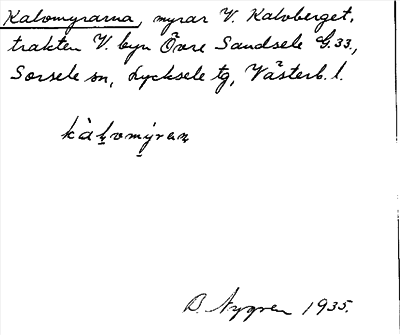 Kalvomyrarna, myrar V. Kalvberget,
trakten V. byn Övre Sandsele G.33.,
Sorsele sn, Lycksele tg, Västerb. l.
kàl̮vomýran̥
B. Nygren 1935.